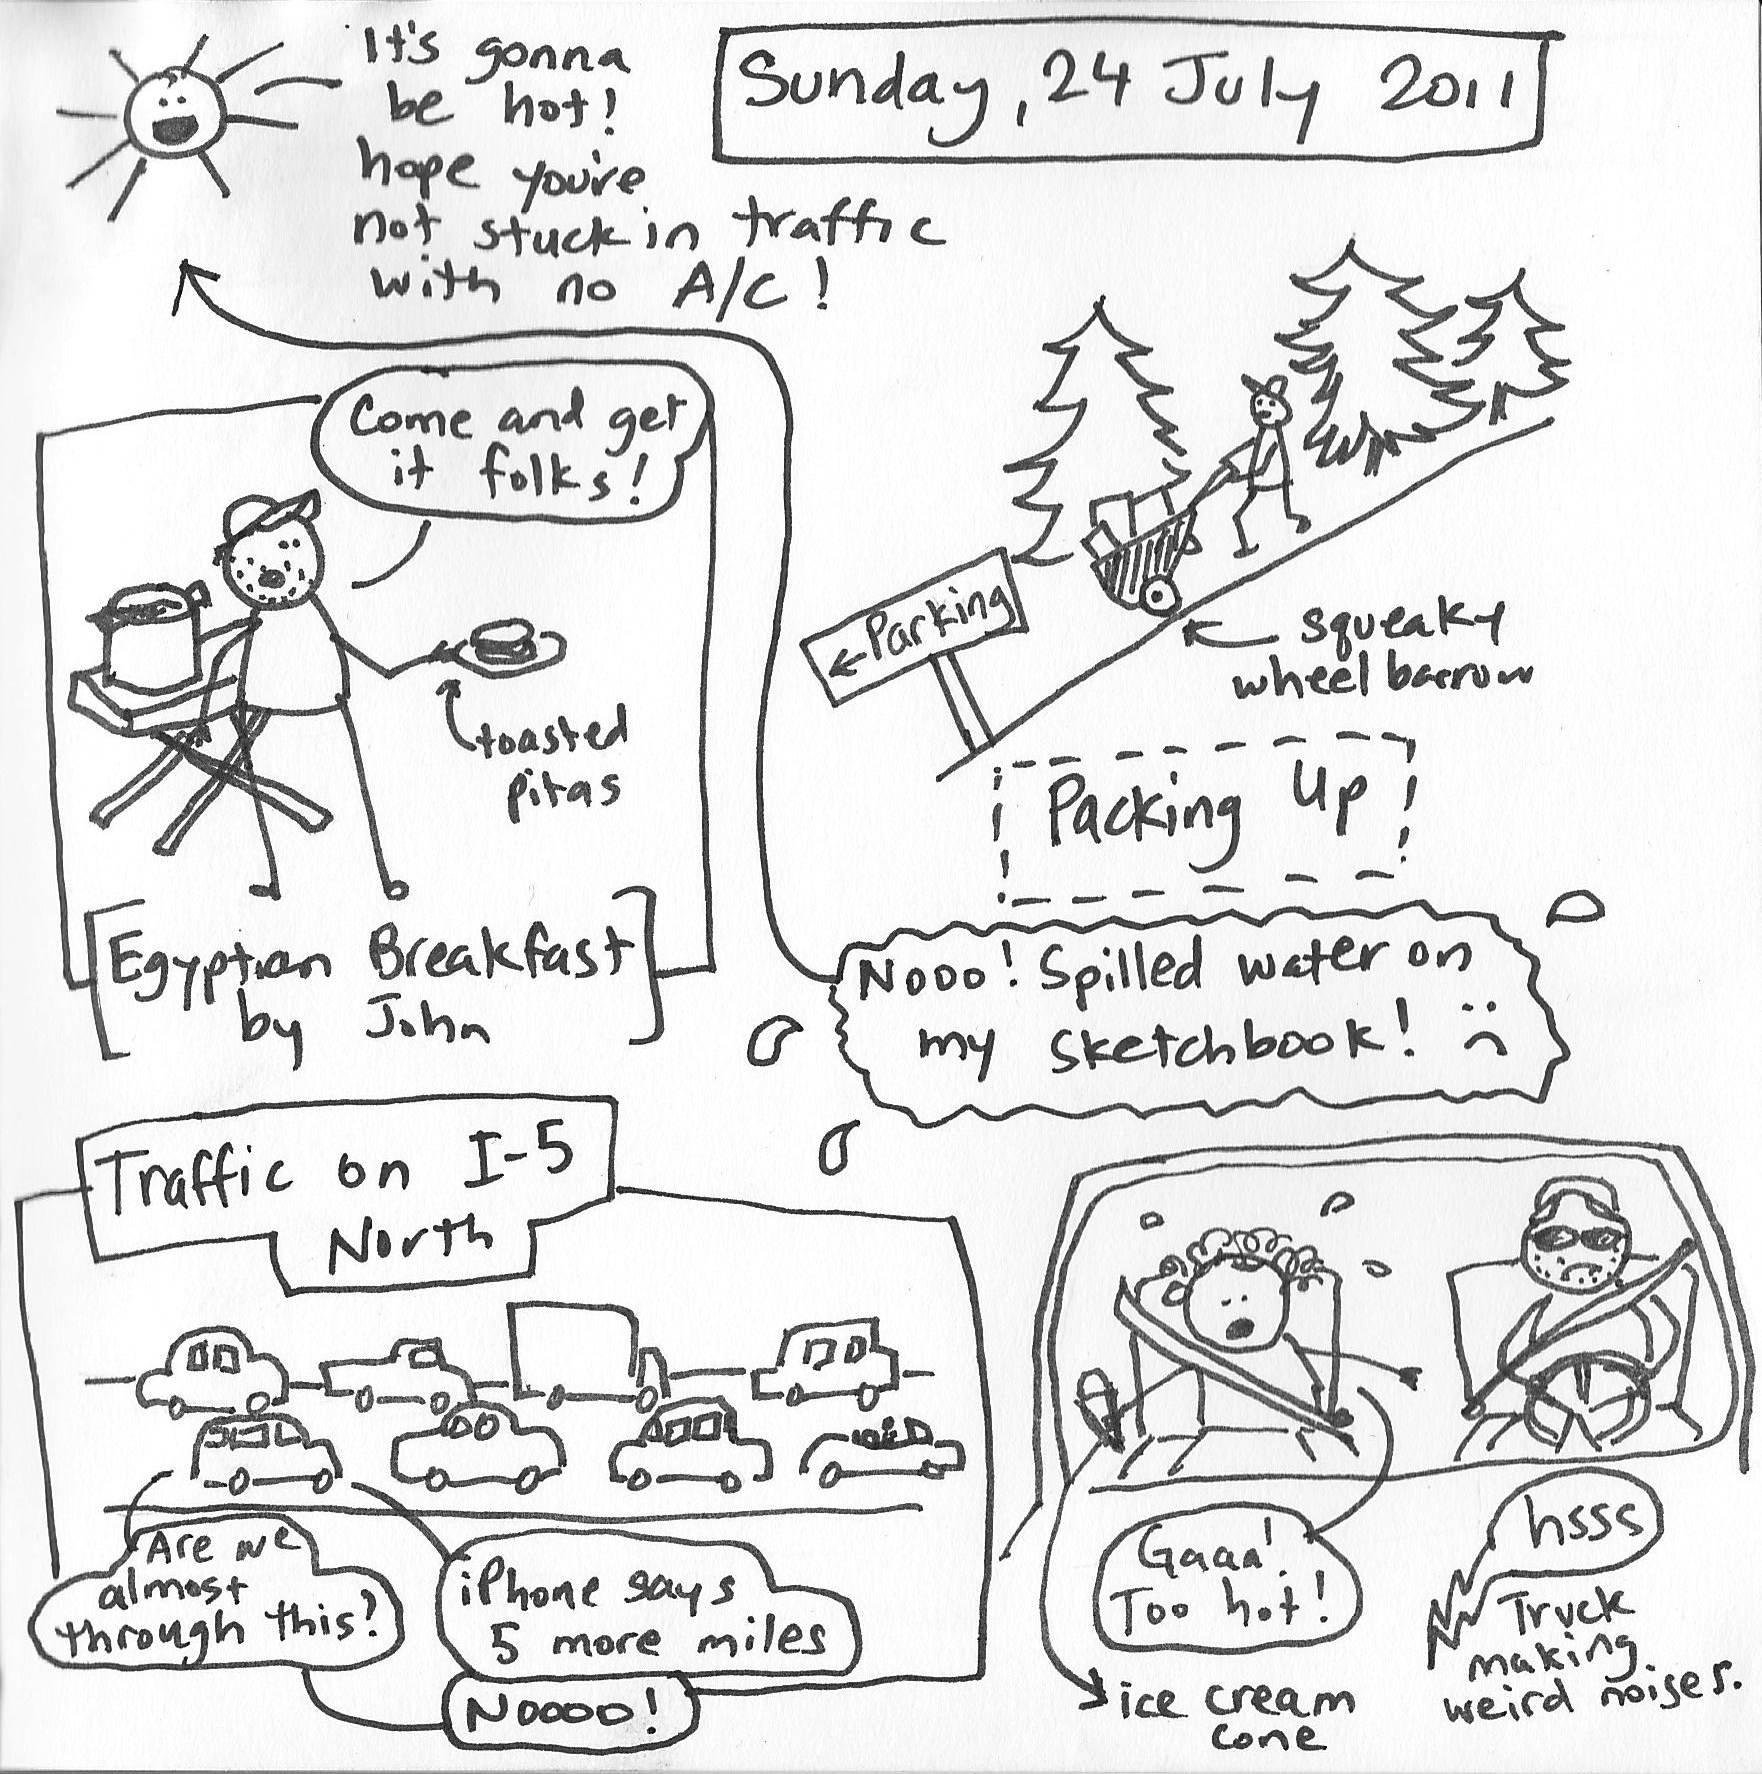 It's gonna
be hot!
hope you're
not stuck in traffic
with no A/C!
Sunday, 24 July 2011
Come and get
it folks!
toasted
pitas
Egyptian Breakfast
by John
←Parking
squeaky
wheel barrow
Packing Up
Nooo! Spilled water on
my sketchbook! :(
Traffic on I-5
North
Are we
almost
through this?
iPhone says
5 more miles
Noooo!
Gaaa!
Too hot!
ice cream
cone
hsss
Truck
making
weird noises.